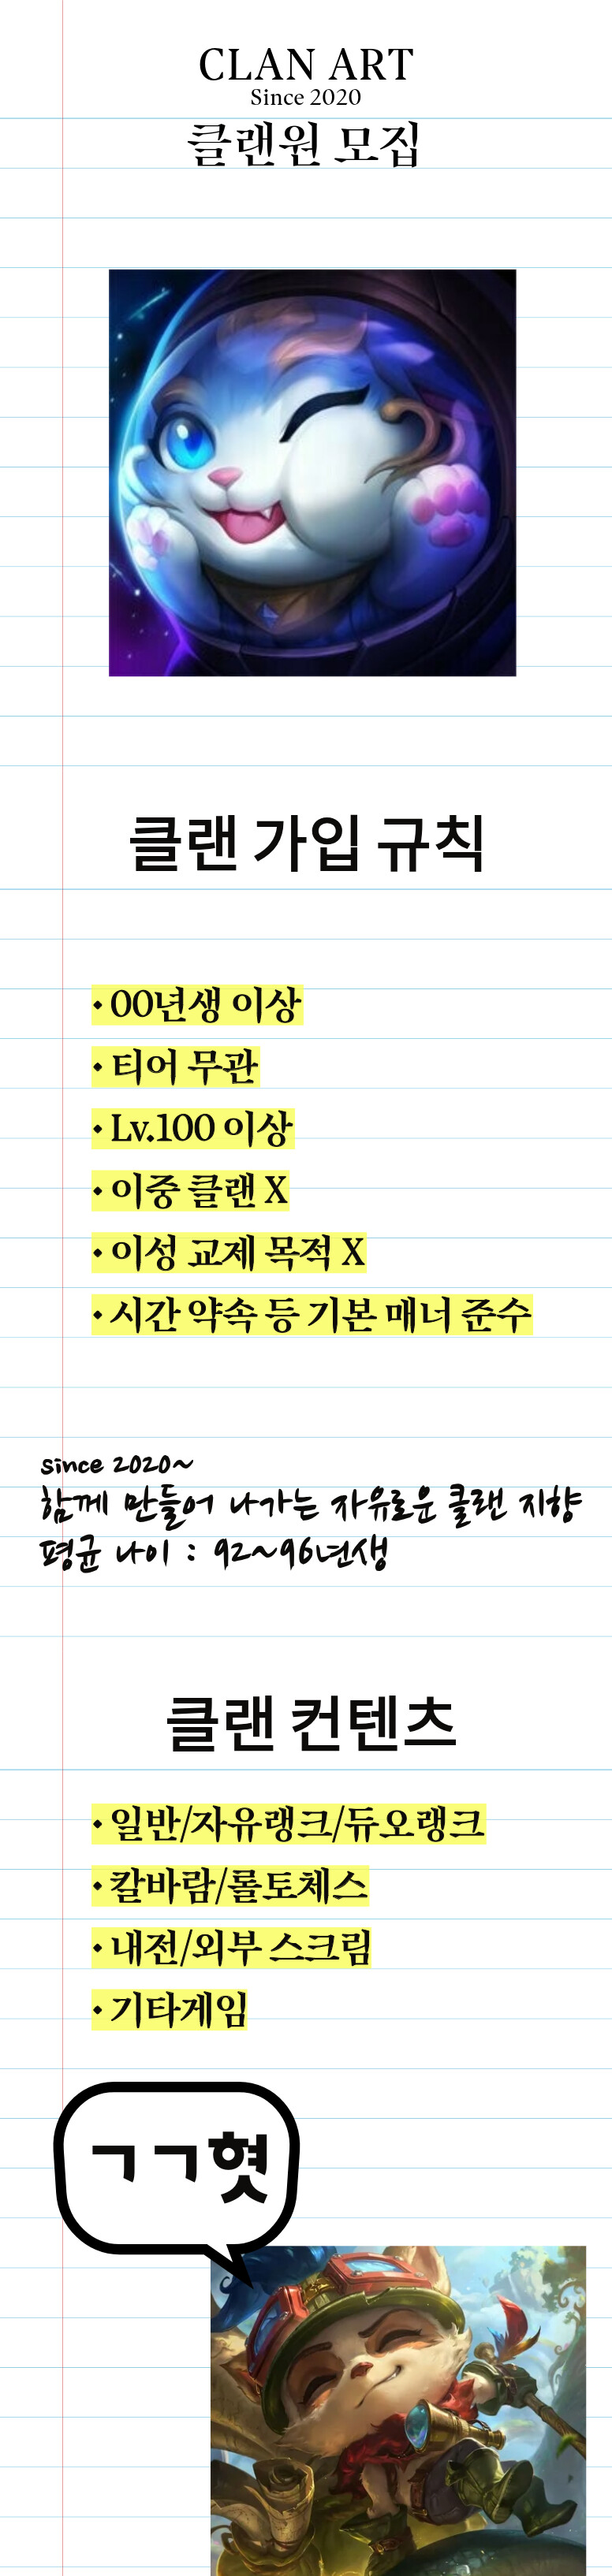 CLAN ART
Since 2020
클랜원 모집
클랜 가입 규칙
• 00년생 이상
• 티어 무관
• Lv.100 이상
• 이중 클랜 X
• 이성 교제 목적 X
• 시간 약속 등 기본 매너 준수
since 2020~
함께 만들어 나가는 자유로운 클랜 지향
평균 나이 : 92~96년생
클랜 컨텐츠
• 일반/자유랭크/듀오랭크
• 칼바람/롤토체스
• 내전/외부 스크림
• 기타게임
ㄱㄱ혓